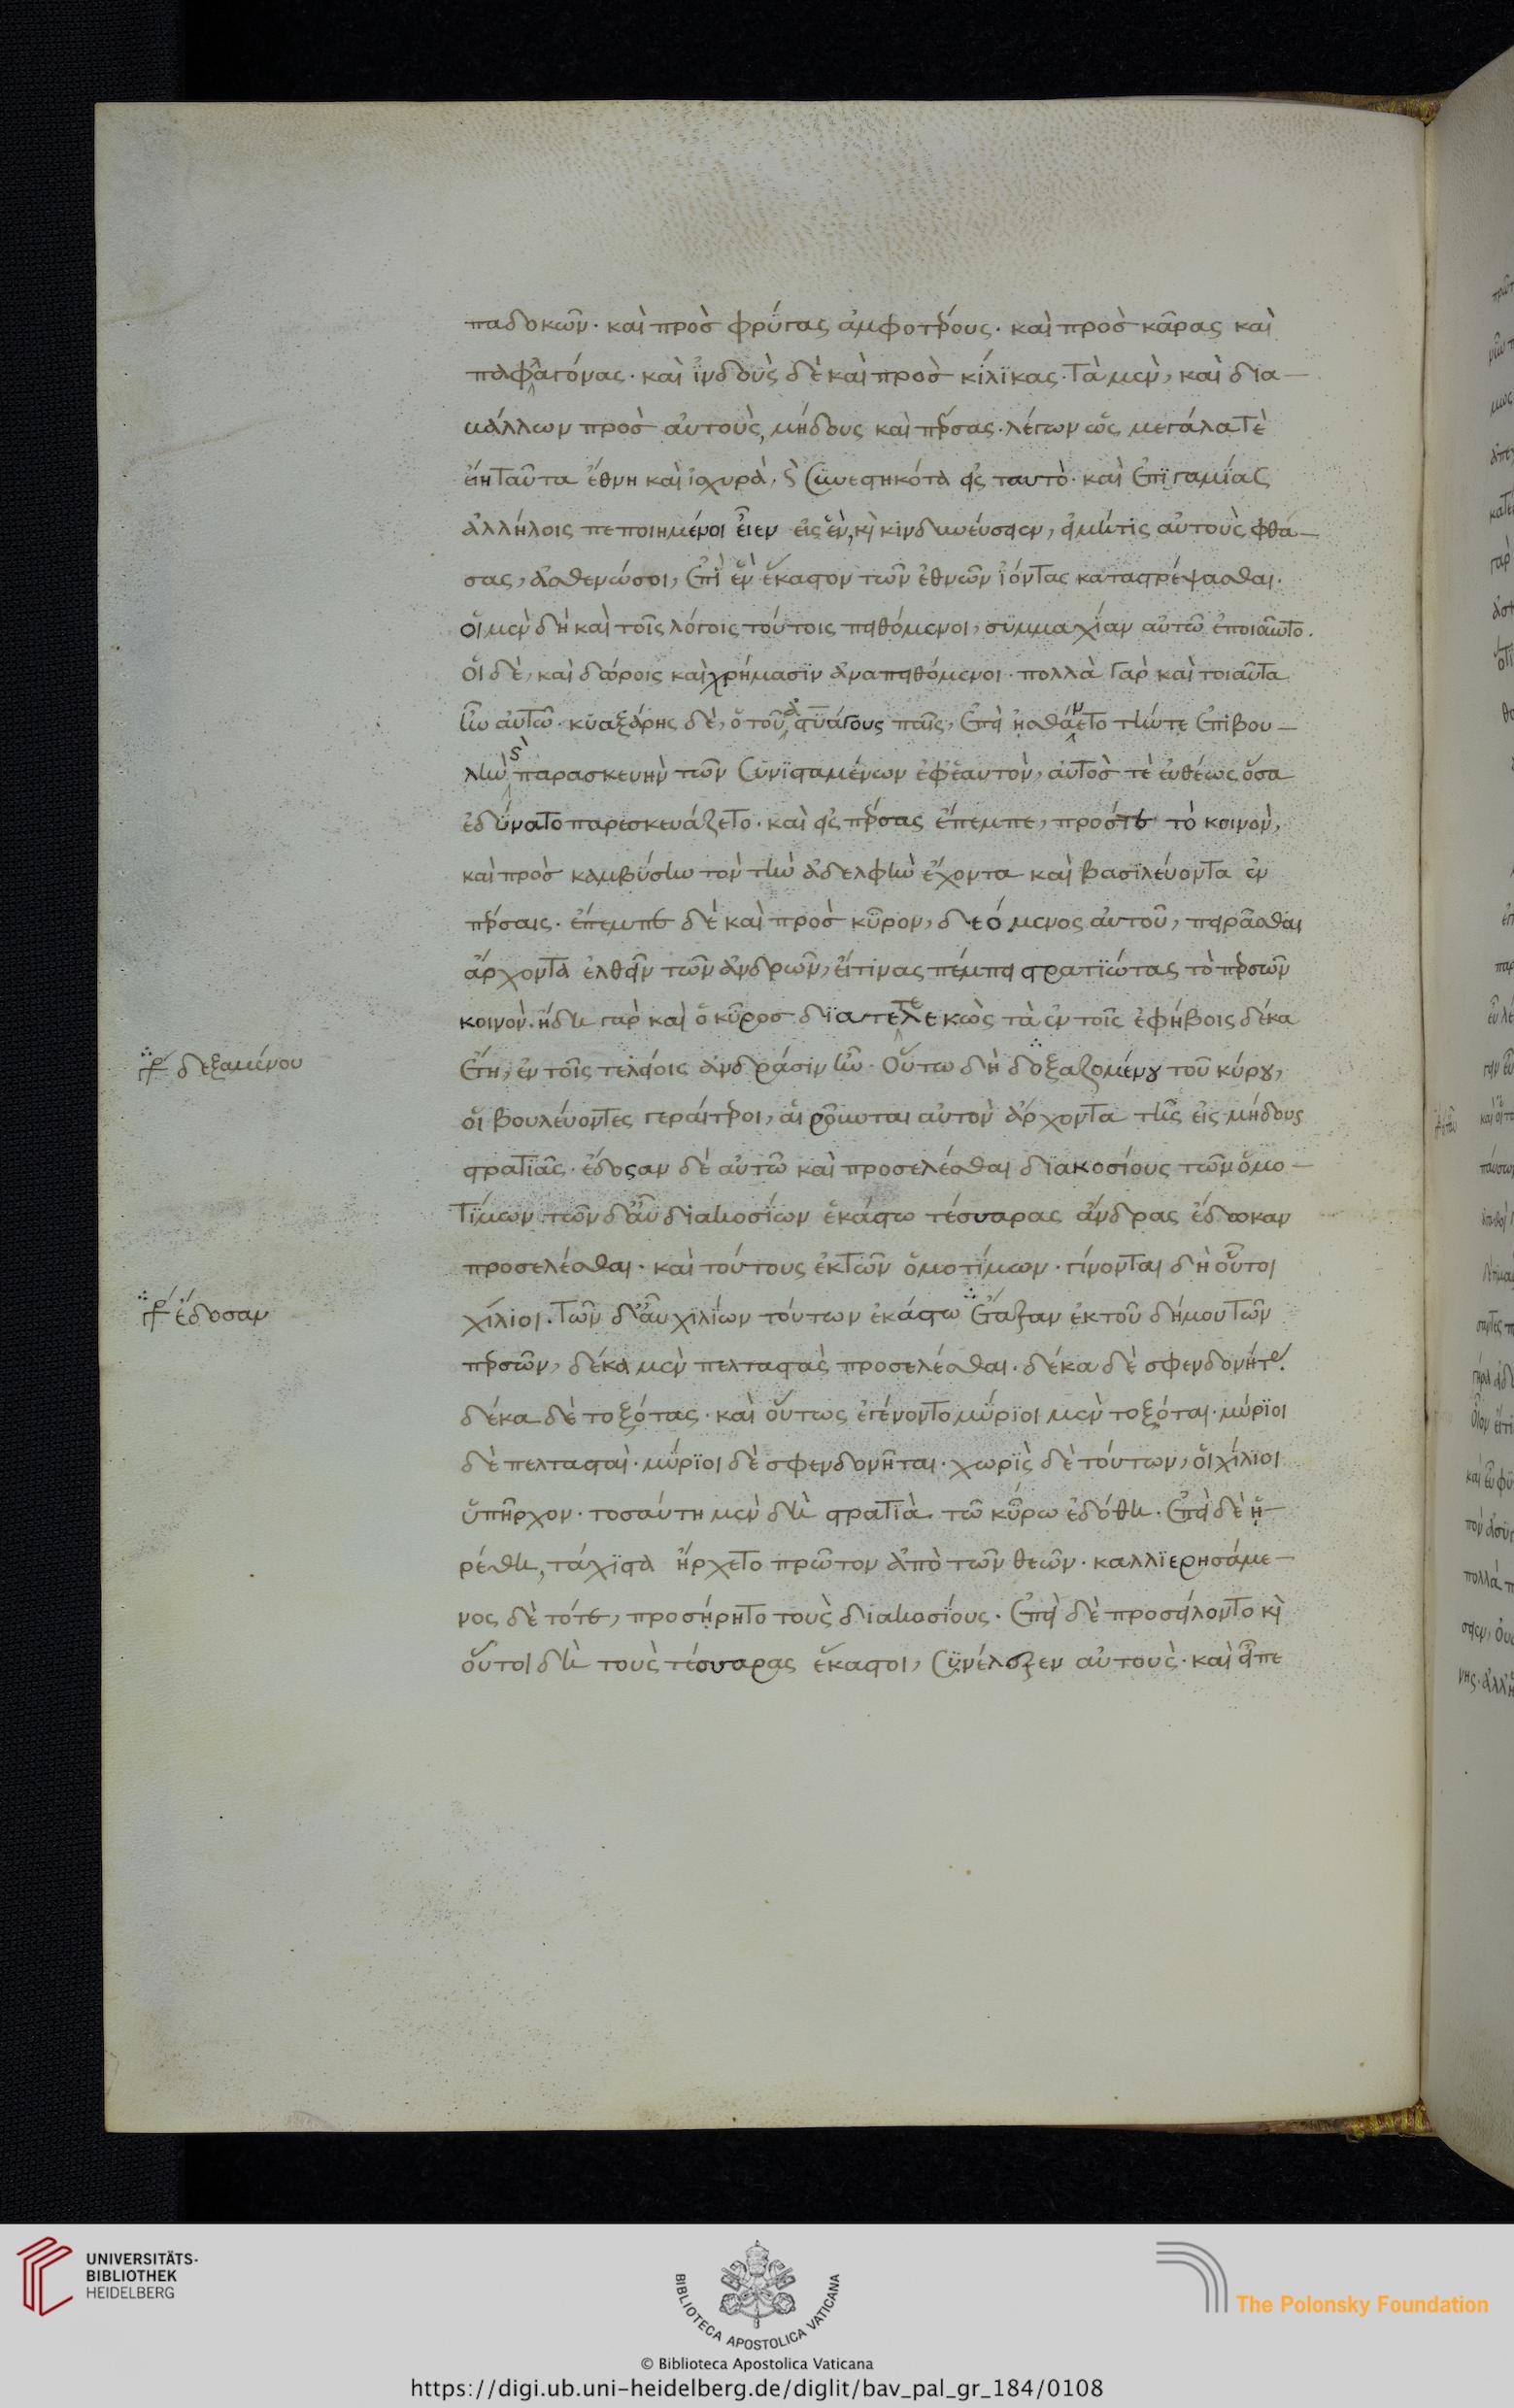 παδοκῶν· καὶ πρὸς φρύγας ἀμφοτέρους· καὶ πρὸς κᾶρας καὶ
παφλαγόνας· καὶ ἰνδοὺς δὲ καὶ πρὸς κίλικας· τὰ μὲν, καὶ δια-
βάλλων πρὸς αὐτοὺς, μήδους καὶ πέρσας· λέγων ὡς μεγάλα τὲ
εἴη ταῦτα ἔθνη καὶ ἰσχυρὰ, καὶ συνεστηκότα εἰς ταυτὸ· καὶ ἐπιγαμίας
ἀλλήλοις πεποιημένοι εἶεν εἰς ἓν, καὶ κινδυνεύσειεν, εἰ μήτις αὐτοὺς φθά-
σας, ἀσθενώσοι, ἐπὶ ἓν ἕκαστον τῶν ἐθνῶν ἰόντας καταστρέψασθαι.
οἱ μὲν δὴ καὶ τοῖς λόγοις τούτοις πειθόμενοι, συμμαχίαν αὐτῶ ἐποιοῦντο.
οἱ δὲ, καὶ δώροις καὶ χρήμασιν ἀναπειθόμενοι· πολλὰ γὰρ καὶ τοιαῦτα
ἦν αὐτῶ· κυαξάρης δὲ, ὁ τοῦ ἀστυάγους παῖς, ἐπεὶ ἠσθάνετο τήντε ἐπιβου-
λὴν καὶ παρασκευὴν τῶν συνισταμένων ἐφ' ἑαυτὸν, αὐτὸς τὲ εὐθέως ὅσα
ἐδύνατο παρεσκευάζετο· καὶ εἰς πέρσας ἔπεμπε, πρόστε τὸ κοινὸν,
καὶ πρὸς καμβύσην τὸν τὴν ἀδελφὴν ἔχοντα καὶ βασιλεύοντα ἐν
πέρσαις· ἔπεμπε δὲ καὶ πρὸς κῦρον, δεόμενος αὐτοῦ, πειρᾶσθαι
ἄρχοντα ἐλθεῖν τῶν ἀνδρῶν, εἴτινας πέμπει στρατιώτας τὸ περσῶν
κοινὸν· ἤδη γὰρ καὶ ὁ κῦρος διατετελεκὼς τὰ ἐν τοῖς ἐφήβοις δέκα
ἔτη, ἐν τοῖς τελείοις ἀνδράσιν ἦν· Οὕτω δὴ δοξαζομένου τοῦ κύρου,
γρ. δεξαμένου
οἱ βουλεύοντες γεραίτεροι, αἱροῦνται αὐτὸν ἄρχοντα τῆς εἰς μήδους
στρατιᾶς· ἔδοσαν δὲ αὐτῶ καὶ προσελέσθαι διακοσίους τῶν ὁμο-
τίμων τῶν δ' αὖ διακοσίων ἑκάστω τέσσαρας ἄνδρας ἔδωκαν
προσελέσθαι· καὶ τούτους ἐκ τῶν ὁμοτίμων· γίνονται δὴ οὗτοι
χίλιοι. τῶν δ' αὖ χιλίων τούτων ἑκάστω ἔταξαν ἐκ τοῦ δήμου τῶν
γρ. ἔδοσαν
περσῶν, δέκα μὲν πελταστὰς προσελέσθαι· δέκα δὲ σφενδονήτας·
δέκα δὲ τοξότας· καὶ οὕτως ἐγένοντο μύριοι μὲν τοξόται· μύριοι
δὲ πελτασταὶ· μύριοι δὲ σφενδονῆται· χωρὶς δὲ τούτων, οἱ χίλιοι
ὑπῆρχον· τοσαύτη μὲν δὴ στρατιὰ τῶ κύρω ἐδόθη· ἐπεὶ δὲ ᾑ
ρέθη, τάχιστα ἤρχετο πρῶτον ἀπὸ τῶν θεῶν· καλλιερησάμε-
νος δὲ τότε, προσῄρητο τοὺς διακοσίους· ἐπεὶ δὲ προσείλοντο καὶ
οὗτοι δὴ τοὺς τέσσαρας ἕκαστοι, συνέλεξεν αὐτοὺς· καὶ εἶπε
UNIVERSITÄTS-
BIBLIOTHEK
HEIDELBERG
BIBLIOTECA APOSTOLICA VATICANA
The Polonsky Foundation
© Biblioteca Apostolica Vaticana
https://digi.ub.uni-heidelberg.de/diglit/bav_pal_gr_184/0108